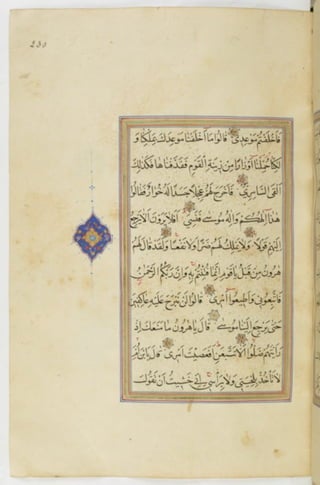 230
فَأَخْلَفْتُمْ مَوْعِدِي قَالُوا مَا أَخْلَفْنَا مَوْعِدَكَ بِمَلْكِنَا وَ
لَكِنَّا حُمِّلْنَا أَوْزَارًا مِنْ زِينَةِ الْقَوْمِ فَقَذَفْنَاهَا فَكَذَلِكَ
أَلْقَى السَّامِرِيُّ فَأَخْرَجَ لَهُمْ عِجْلًا جَسَدًا لَهُ خُوَارٌ فَقَالُوا
هَذَا إِلَهُكُمْ وَإِلَهُ مُوسَى فَنَسِيَ أَفَلَا يَرَوْنَ أَلَّا يَرْجِعُ
إِلَيْهِمْ قَوْلًا وَلَا يَمْلِكُ لَهُمْ ضَرًّا وَلَا نَفْعًا وَلَقَدْ قَالَ لَهُمْ
هَرُونُ مِنْ قَبْلُ يَا قَوْمِ إِنَّمَا فُتِنْتُمْ بِهِ وَإِنَّ رَبَّكُمُ الرَّحْمَنُ
فَاتَّبِعُونِي وَأَطِيعُوا أَمْرِي قَالُوا لَنْ نَبْرَحَ عَلَيْهِ عَاكِفِينَ
حَتَّى يَرْجِعَ إِلَيْنَا مُوسَى قَالَ يَا هَرُونُ مَا مَنَعَكَ إِذْ
رَأَيْتَهُمْ ضَلُّوا أَلَّا تَتَّبِعَنِ أَفَعَصَيْتَ أَمْرِي قَالَ يَا ابْنَ أُمَّ
لَا تَأْخُذْ بِلِحْيَتِي وَلَا بِرَأْسِي إِنِّي خَشِيتُ أَنْ تَقُولَ